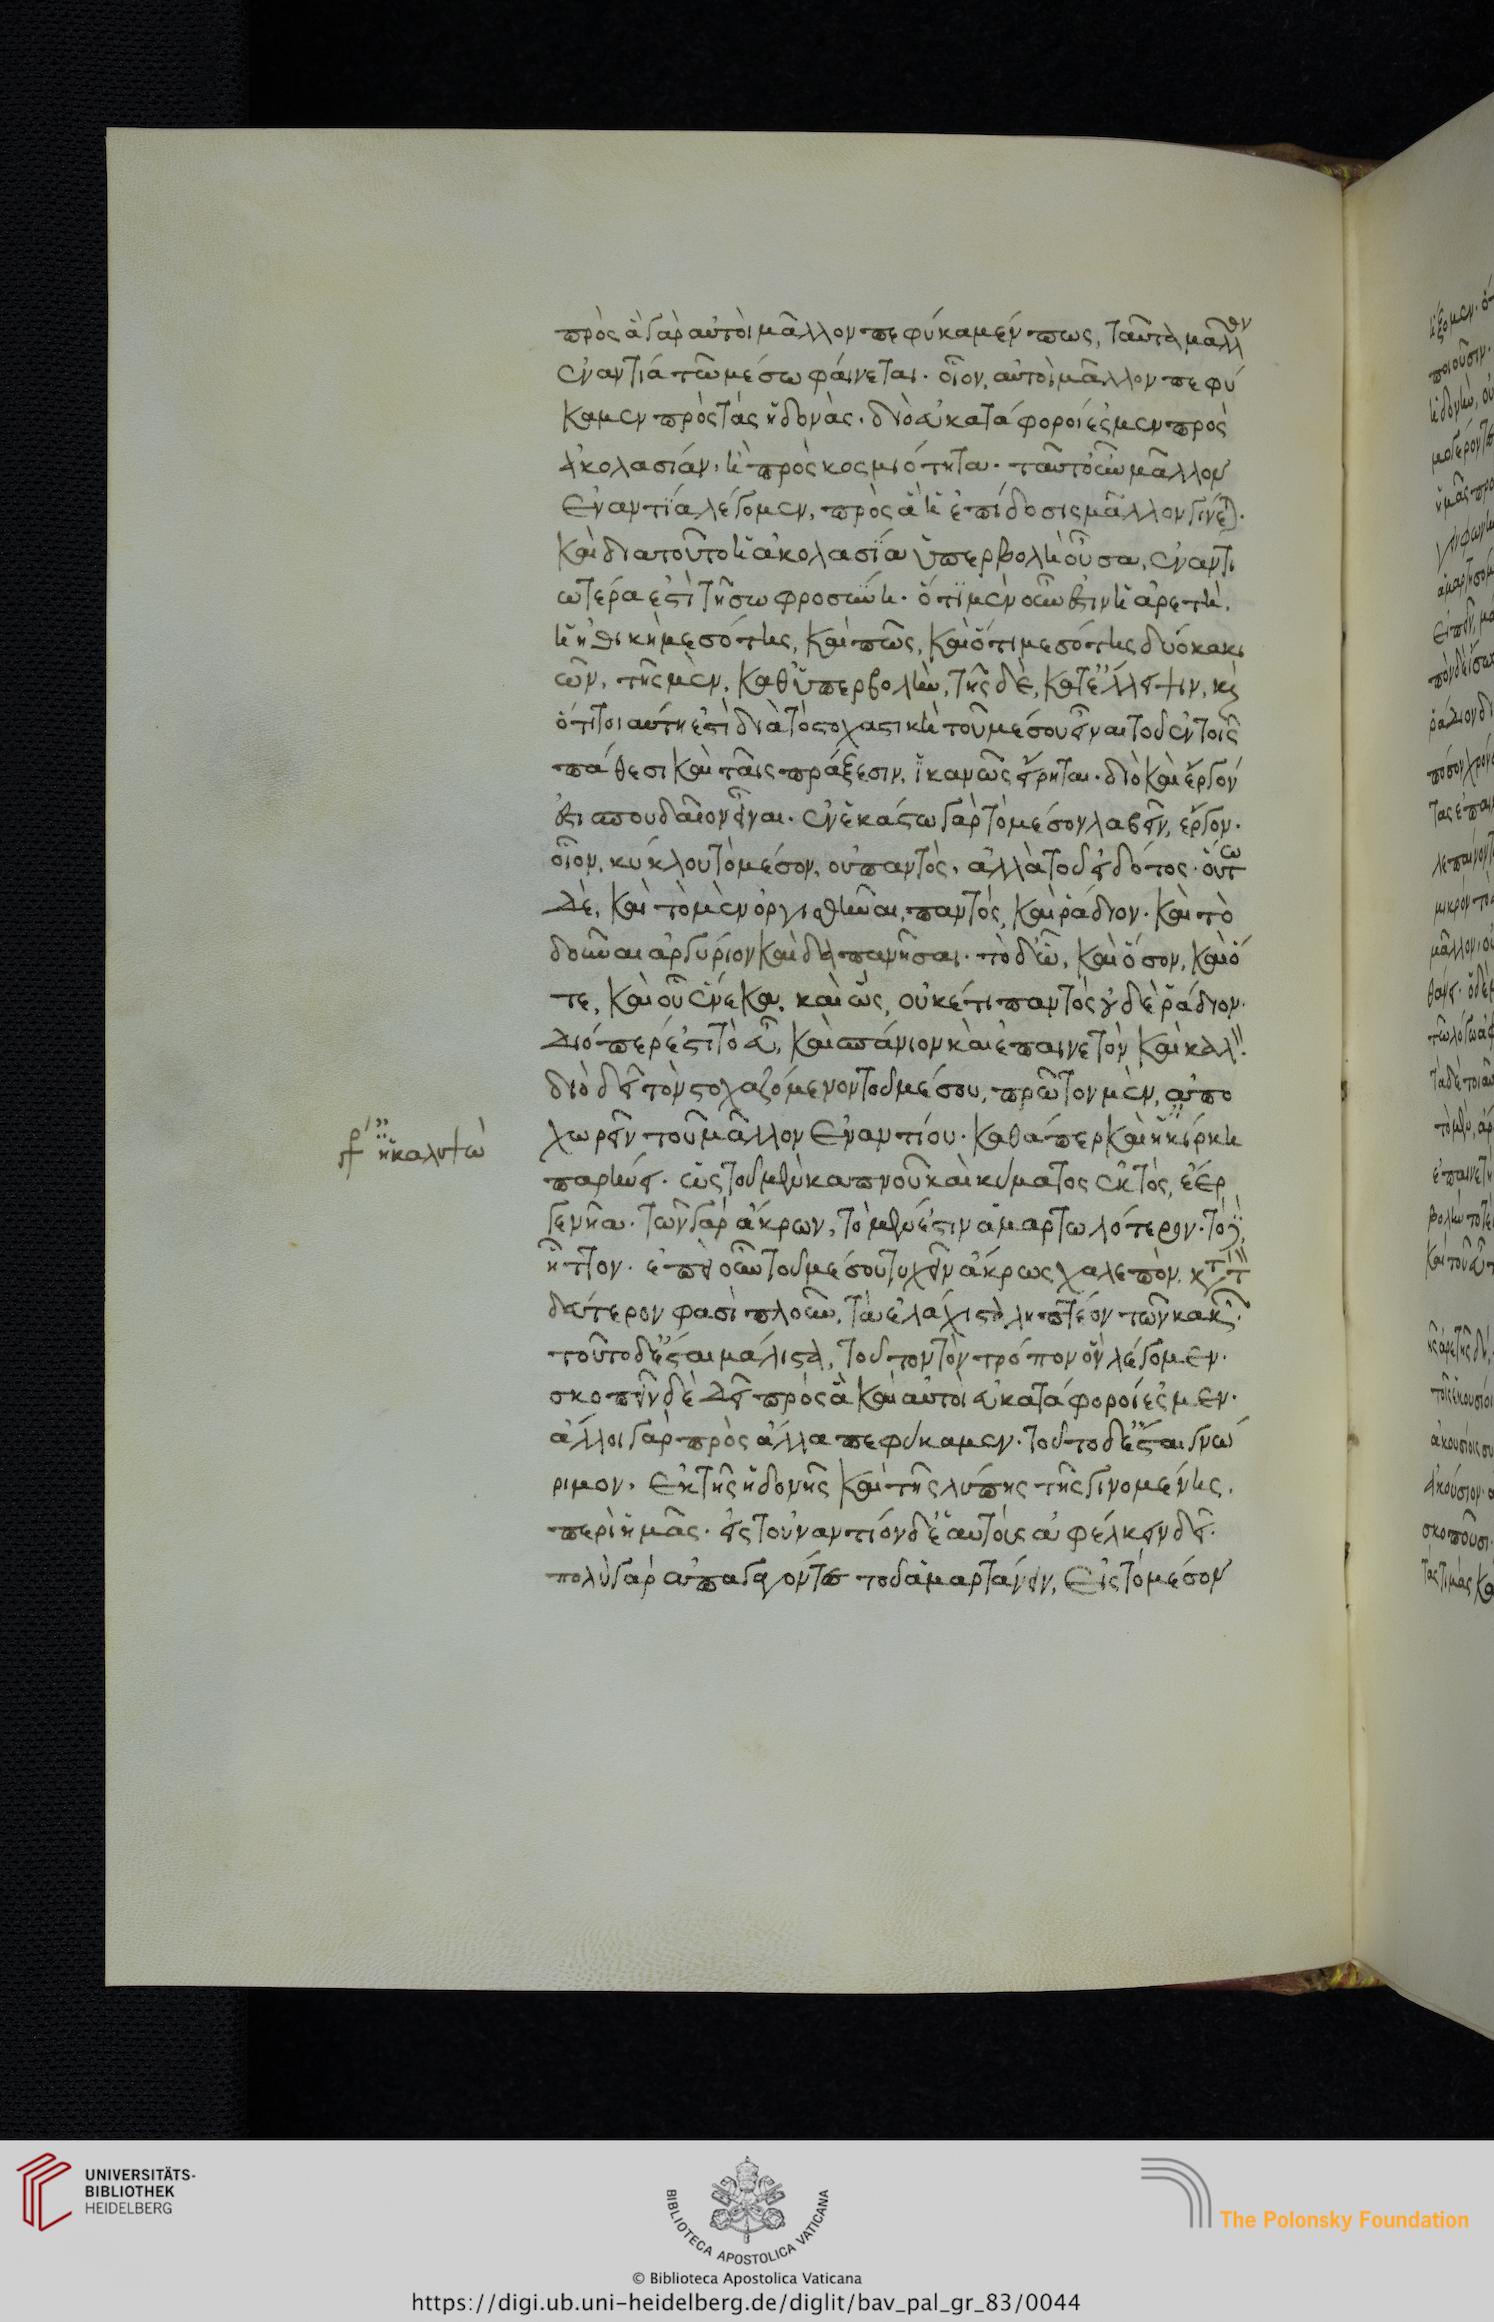 πρὸς ἃ γὰρ αὐτοὶ μᾶλλον πεφύκαμέν πως, ταῦτα μᾶλλον
ἐναντία τῶ μέσω φαίνεται. οἷον, αὐτοὶ μᾶλλον πεφύ
καμεν πρὸς τὰς ἡδονάς. διὸ εὐκατάφοροί ἐσμεν πρὸς
ἀκολασίαν, ἢ πρὸς κοσμιότητα. ταῦτ' οὖν μᾶλλον
ἐναντία λέγομεν, πρὸς ἃ ἡ ἐπίδοσις μᾶλλον γίνεται.
καὶ δια τοῦτο ἡ ἀκολασία ὑπερβολὴ οὖσα, ἐναντι
ωτέρα ἐστὶ τῆ σωφροσύνη. ὅτι μὲν οὖν ἐστιν ἡ ἀρετὴ,
ἡ ἠθικὴ μεσότης, καὶ πῶς, καὶ ὅτι μεσότης δύο κακι
ῶν, τῆς μὲν, καθ' ὑπερβολὴν, τῆς δὲ, κατ' ἔλλειψιν, καὶ
ὅτι τοιαύτη ἐστὶ διὰ τὸ στοχαστικὴ τοῦ μέσου εἶναι τοῦ ἐν τοῖς
πάθεσι καὶ ταῖς πράξεσιν, ἱκανῶς εἴρηται. διὸ καὶ ἔργον
ἐστι σπουδαῖον εἶναι. ἐν ἑκάστω γὰρ τὸ μέσον λαβεῖν, ἔργον.
οἷον, κύκλου τὸ μέσον, οὐ παντὸς, ἀλλὰ τοῦ εἰδότος. οὕτω
δὲ, καὶ τὸ μὲν ὀργισθῆναι, παντός, καὶ ῥάδιον. καὶ τὸ
δοῦναι ἀργύριον καὶ δαπανῆσαι. τὸ δ' ὧ, καὶ ὅσον, καὶ ὅ
τε, καὶ οὗ ἕνεκα, καὶ ὥς, οὐκέτι παντὸς οὐδὲ ῥάδιον.
διόπερ ἐστὶ τὸ εὖ, καὶ σπάνιον καὶ ἐπαινετὸν καὶ καλόν.
διὸ δεῖ τὸν στοχαζόμενον τοῦ μέσου, πρῶτον μὲν, ἀπο
χωρεῖν τοῦ μᾶλλον ἐναντίου. καθάπερ καὶ ἡ κίρκη
γρ. ἡ καλυψὼ
παρήνει. ὡς τοῦ μὲν καπνοῦ καὶ κύματος ἐκτὸς, ἔερ
γε νῆα. τῶν γὰρ ἄκρων, τὸ μέν ἐστιν ἁμαρτωλότερον. τὸ δ'
ἧττον. ἐπεὶ οὖν τοῦ μέσου τυχεῖν ἄκρως χαλεπὸν. κατὰ τὸν
δεύτερον φασὶ πλοῦν, τὰ ἐλάχιστα ληπτέον τῶν κακῶν.
τοῦτο δ' ἔσται μάλιστα, τοῦτον τὸν τρόπον ὃν λέγομεν.
σκοπεῖν δὲ δεῖ πρὸς ἃ καὶ αὐτοὶ εὐκατάφοροί ἐσμεν.
ἄλλοι γὰρ πρὸς ἄλλα πεφύκαμεν. τοῦτο δ' ἔσται γνώ
ριμον, ἐκ τῆς ἡδονῆς καὶ τῆς λύπης τῆς γινομένης,
περὶ ἡμᾶς. εἰς τοὐναντίον δ' ἑαυτοὺς ἀφέλκειν δεῖ.
πολὺ γὰρ ἀπαγαγόντες τοῦ ἁμαρτάνειν, εἰς τὸ μέσον
UNIVERSITÄTS-
BIBLIOTHEK
HEIDELBERG
BIBLIOTECA APOSTOLICA VATICANA
The Polonsky Foundation
© Biblioteca Apostolica Vaticana
https://digi.ub.uni-heidelberg.de/diglit/bav_pal_gr_83/0044